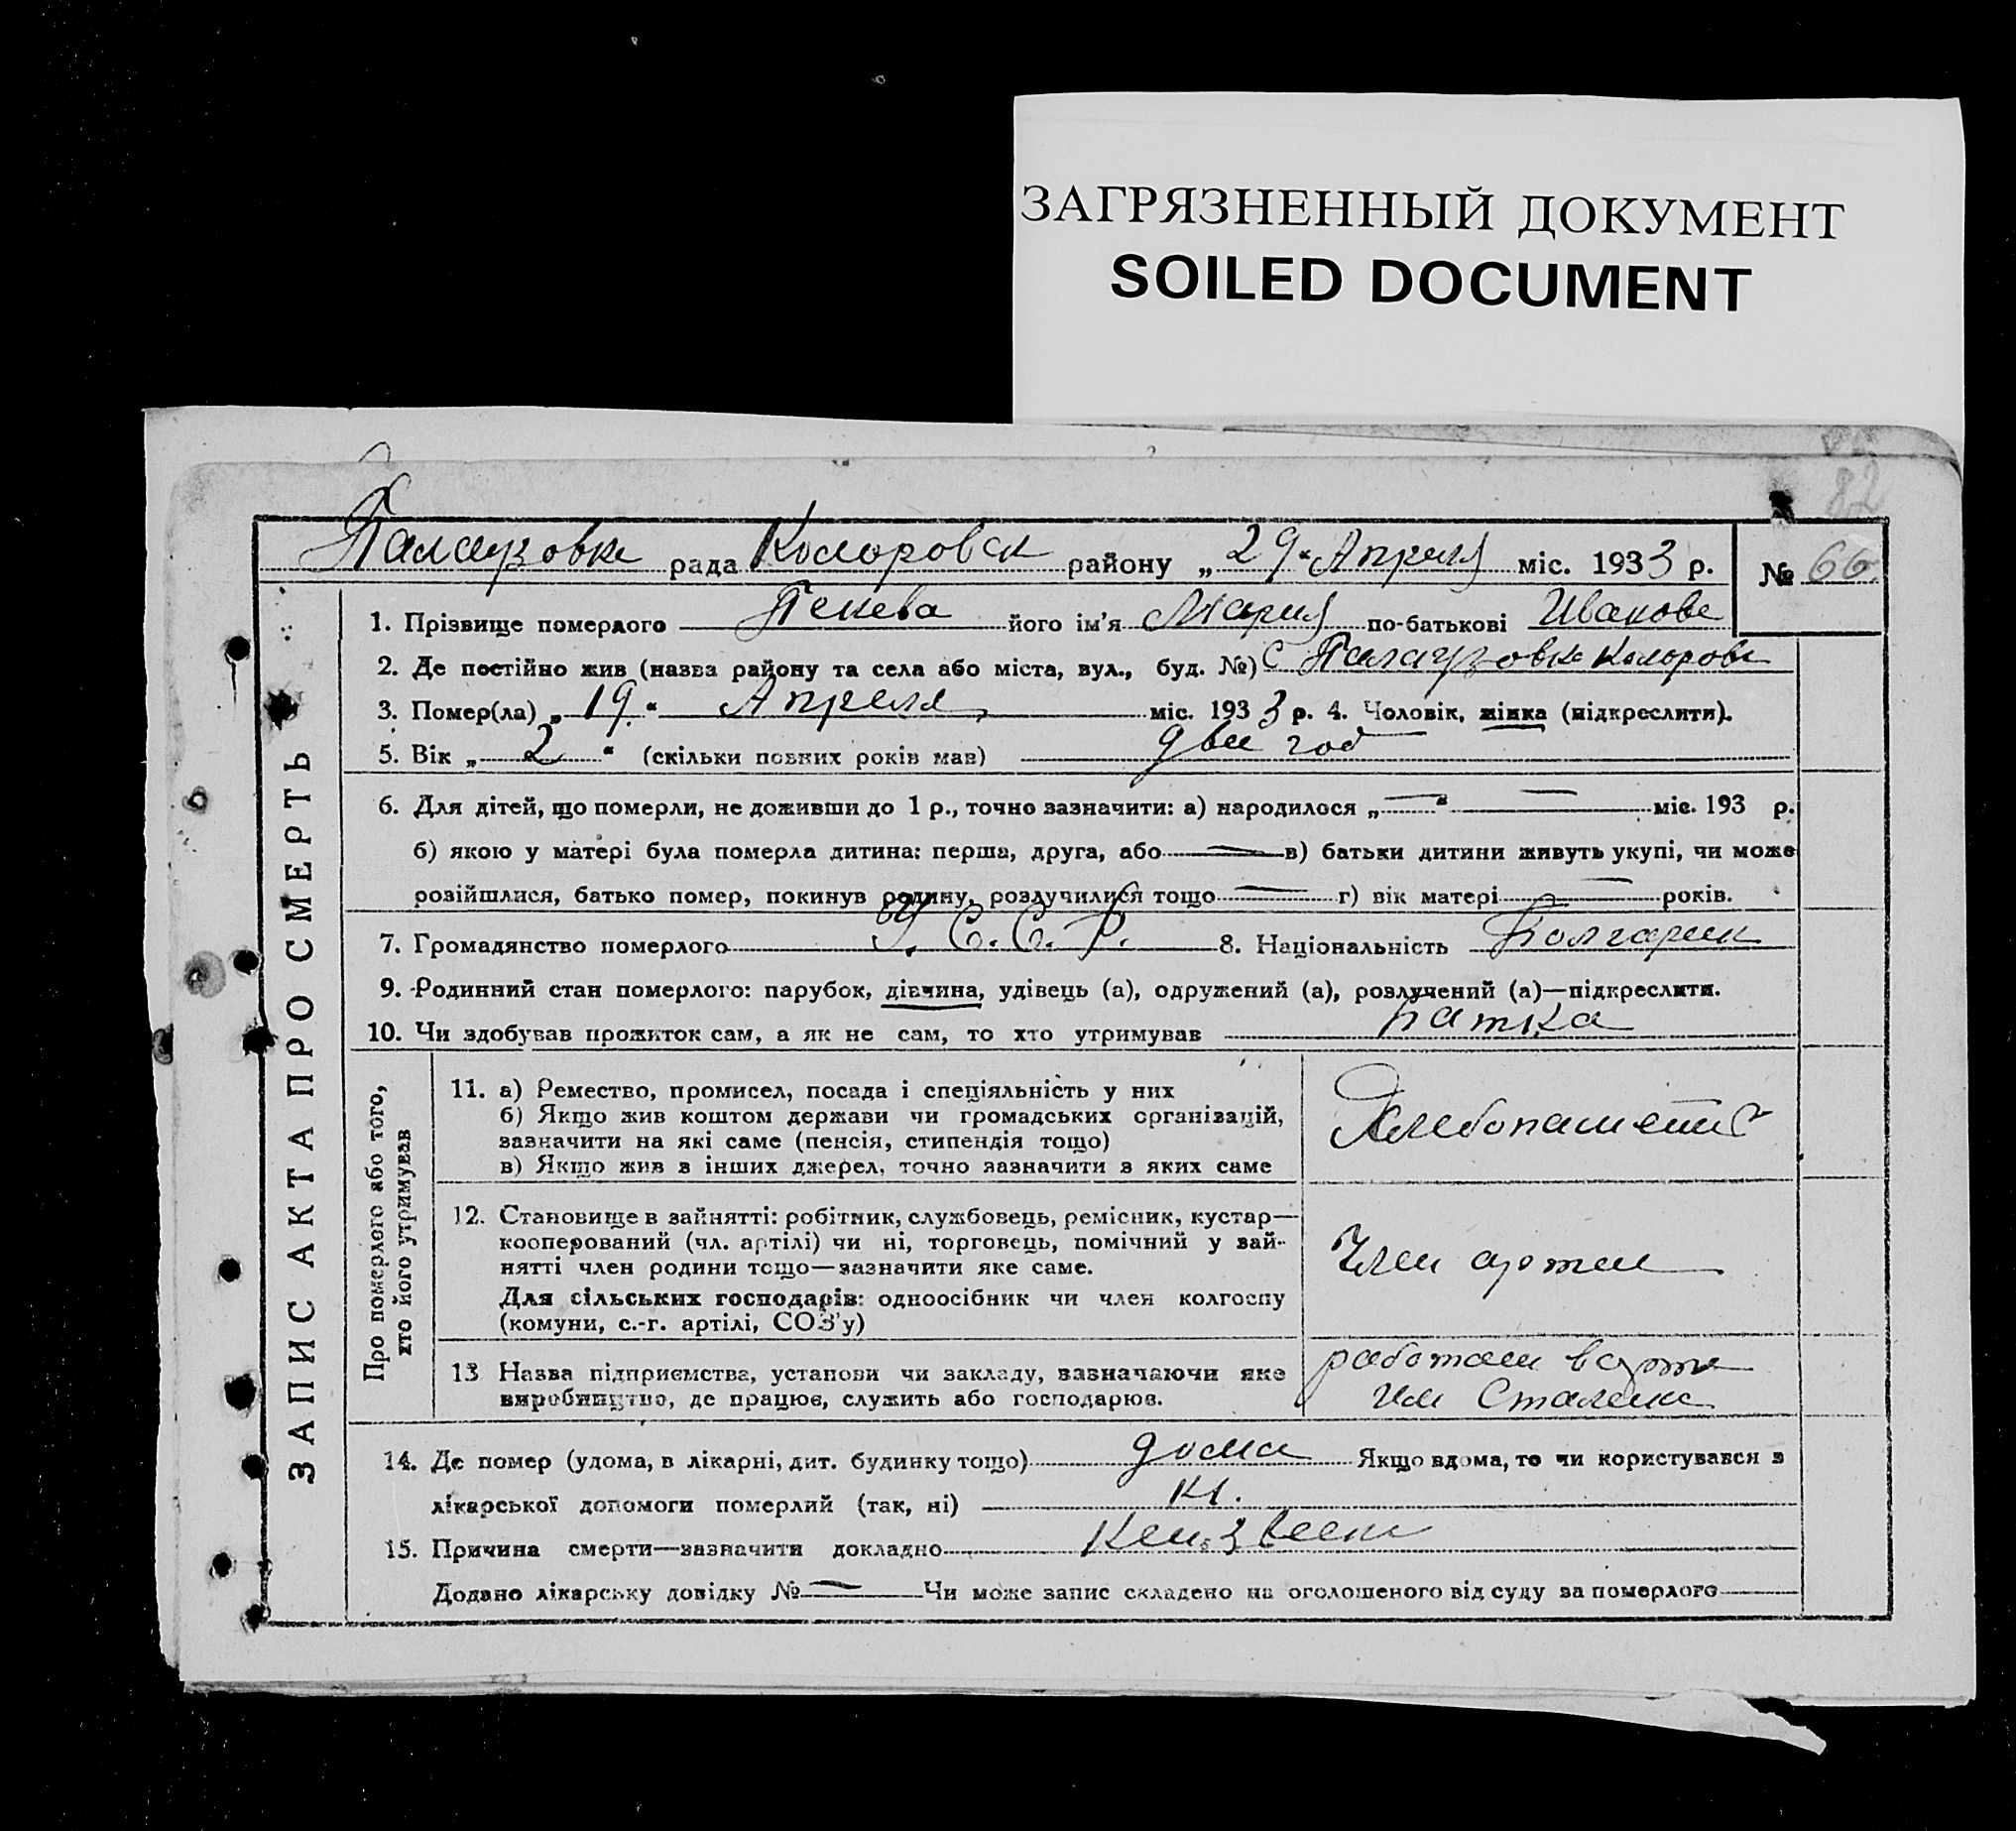 ЗАГРЯЗНЕННЫЙ ДОКУМЕНТ
SOILED DOCUMENT
82
Палаузовка рада Коларовск району „29“ Апреля міс. 1933 р. № 66
ЗАПИС АКТА ПРО СМЕРТЬ
1. Прізвище померлого Пенева його ім'я Мария по-батькові Иванова
2. Де постійно жив (назва району та села або міста, вул., буд. №) С Палаузовка Коларовк
3. Помер(ла) „19“ Апреля міс. 1933 р. 4. Чоловік, жінка (підкреслити).
5. Вік „2“ (скільки повних років мав) две год
6. Для дітей, що померли, не доживши до 1 р., точно зазначити: а) народилося „—“ — міс. 193 р.
б) якою у матері була померла дитина: перша, друга, або — в) батьки дитини живуть укупі, чи може
розійшлися, батько помер, покинув родину, розлучилися тощо — г) вік матері — років.
7. Громадянство померлого У. С. С. Р. 8. Національність Болгарин
9. Родинний стан померлого: парубок, дівчина, удівець (а), одружений (а), розлучений (а)—підкреслити.
10. Чи здобував прожиток сам, а як не сам, то хто утримував батка
Про померлого або того,
хто його утримував
11. а) Ремество, промисел, посада і спеціяльність у них
б) Якщо жив коштом держави чи громадських організацій,
зазначити на які саме (пенсія, стипендія тощо)
в) Якщо жив з інших джерел, точно зазначити з яких саме
12. Становище в зайнятті: робітник, службовець, ремісник, кустар—
кооперований (чл. артілі) чи ні, торговець, помічний у зай-
нятті член родини тощо—зазначити яке саме.
Для сільських господарів: одноосібник чи член колгоспу
(комуни, с.-г. артілі, СОЗ'у)
Член артели
13 Назва підприємства, установи чи закладу, зазначаючи яке
виробництво, де працює, служить або господарює.
работаеи в арте
им Сталина
14. Де помер (удома, в лікарні, дит. будинку тощо) дома Якщо вдома, то чи користувався з
лікарської допомоги померлий (так, ні) Ні.
15. Причина смерти—зазначити докладно
Додано лікарську довідку № — Чи може запис складено на оголошеного від суду за померлого